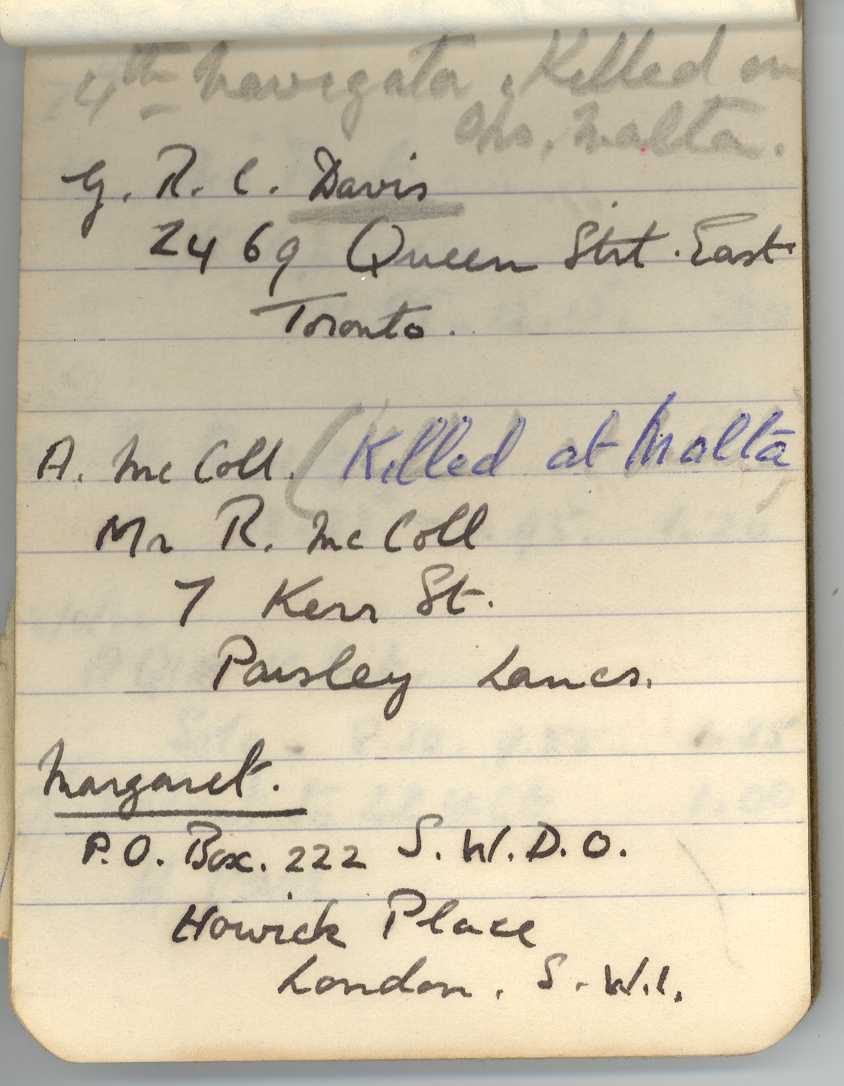 4th Navigator. Killed on
Ops. Malta.
G. R. C. Davis
2469 Queen Strt. East
Toronto.
A. McColl. (Killed at Malta
Mr R. McColl
7 Kerr St.
Paisley Lancs.
Margaret.
P.O. Box. 222 S.W.D.O.
Howick Place
London. S.W.1.